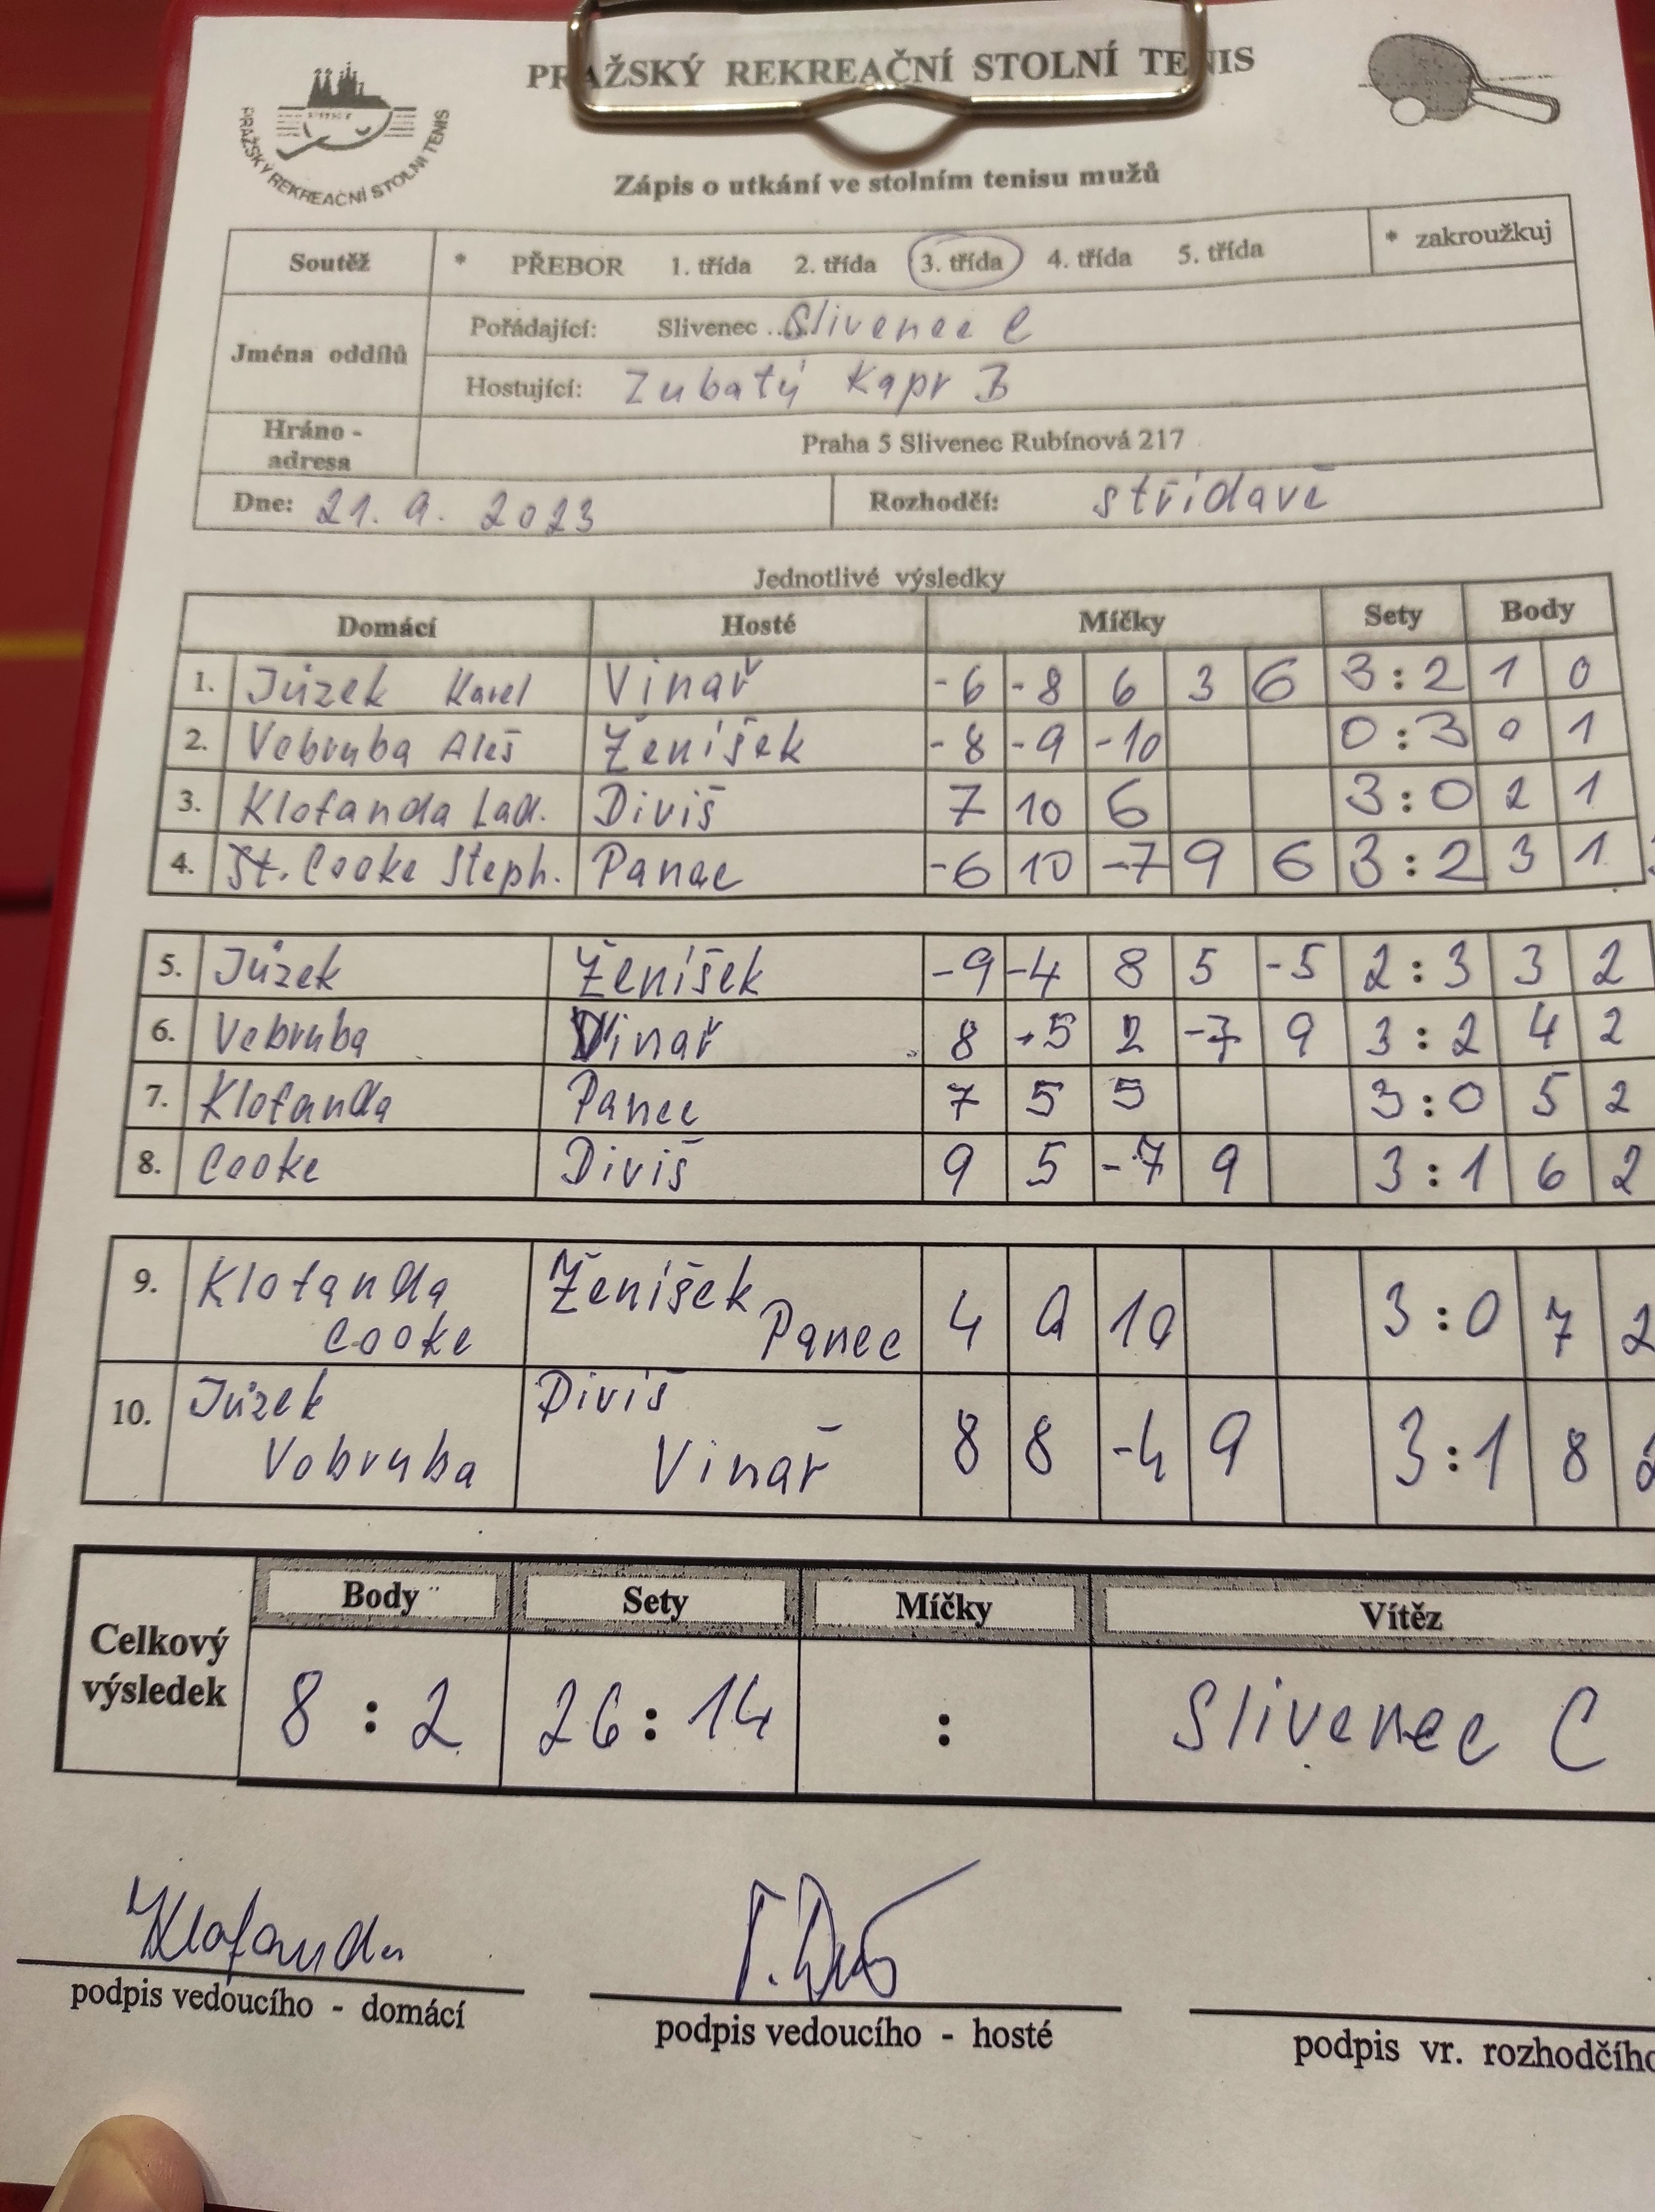 PRAŽSKÝ REKREAČNÍ STOLNÍ TENIS
PRAŽSKÝ REKREAČNÍ STOLNÍ TENIS
Zápis o utkání ve stolním tenisu mužů
Soutěž * PŘEBOR 1. třída 2. třída 3. třída 4. třída 5. třída * zakroužkuj
Jména oddílů
Pořádající: Slivenec .. Slivenec C
Hostující: Zubatý Kapr B
Hráno - adresa Praha 5 Slivenec Rubínová 217
Dne: 21. 9. 2023 Rozhodčí: střídavě
Jednotlivé výsledky
Domácí Hosté Míčky Sety Body
1. Jůzek Karel Vinař -6 -8 6 3 6 3:2 1 0
2. Vobruba Aleš Ženíšek -8 -9 -10 0:3 0 1
3. Klofanda Lad. Diviš 7 10 6 3:0 2 1
4. St. Cooke Steph. Panec -6 10 -7 9 6 3:2 3 1
5. Jůzek Ženíšek -9 -4 8 5 -5 2:3 3 2
6. Vobruba Vinař 8 -5 2 -7 9 3:2 4 2
7. Klofanda Panec 7 5 5 3:0 5 2
8. Cooke Diviš 9 5 -7 9 3:1 6 2
9. Klofanda Cooke Ženíšek Panec 4 9 10 3:0 7 2
10. Jůzek Vobruba Diviš Vinař 8 8 -4 9 3:1 8 2
Celkový výsledek
Body Sety Míčky Vítěz
8 : 2 26 : 14 : Slivenec C
Klofanda
podpis vedoucího - domácí
podpis vedoucího - hosté
podpis vr. rozhodčího